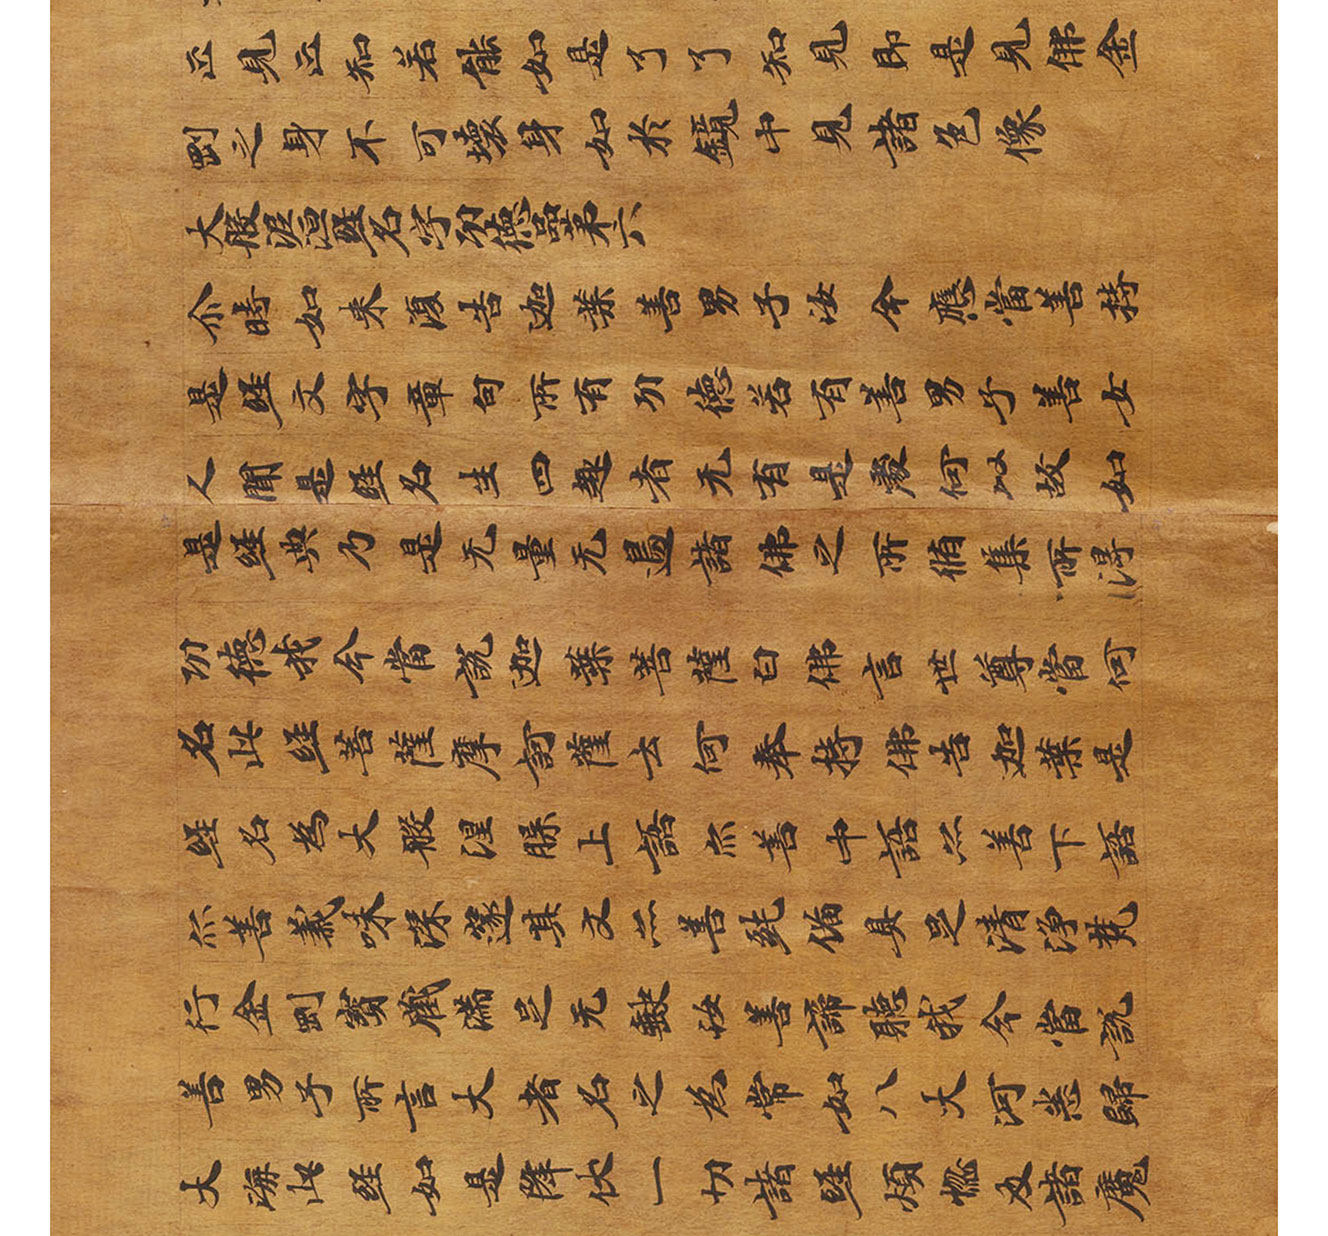 正見正知若能如是了了知見即是見佛金
剛之身不可壞身如於鏡中見諸色像
大般泥洹経名字功德品第六
尒時如来復告迦葉善男子汝今應當善持
是経文字章句所有功德若有善男子善女
人聞是経名生四趣者无有是處何以故如
是経典乃是无量无邊諸佛之所脩集所得
功德我今當說迦葉菩薩白佛言世尊當何
名此経菩薩摩訶薩云何奉持佛告迦葉是
経名為大般涅槃上語亦善中語亦善下語
亦善義味深邃其文亦善純俻具足清淨梵
行金剛寶藏滿足无缺汝善諦聽我今當說
善男子所言大者名之為常如八大河悉歸
大海此経如是降伏一切諸経煩惱及諸魔